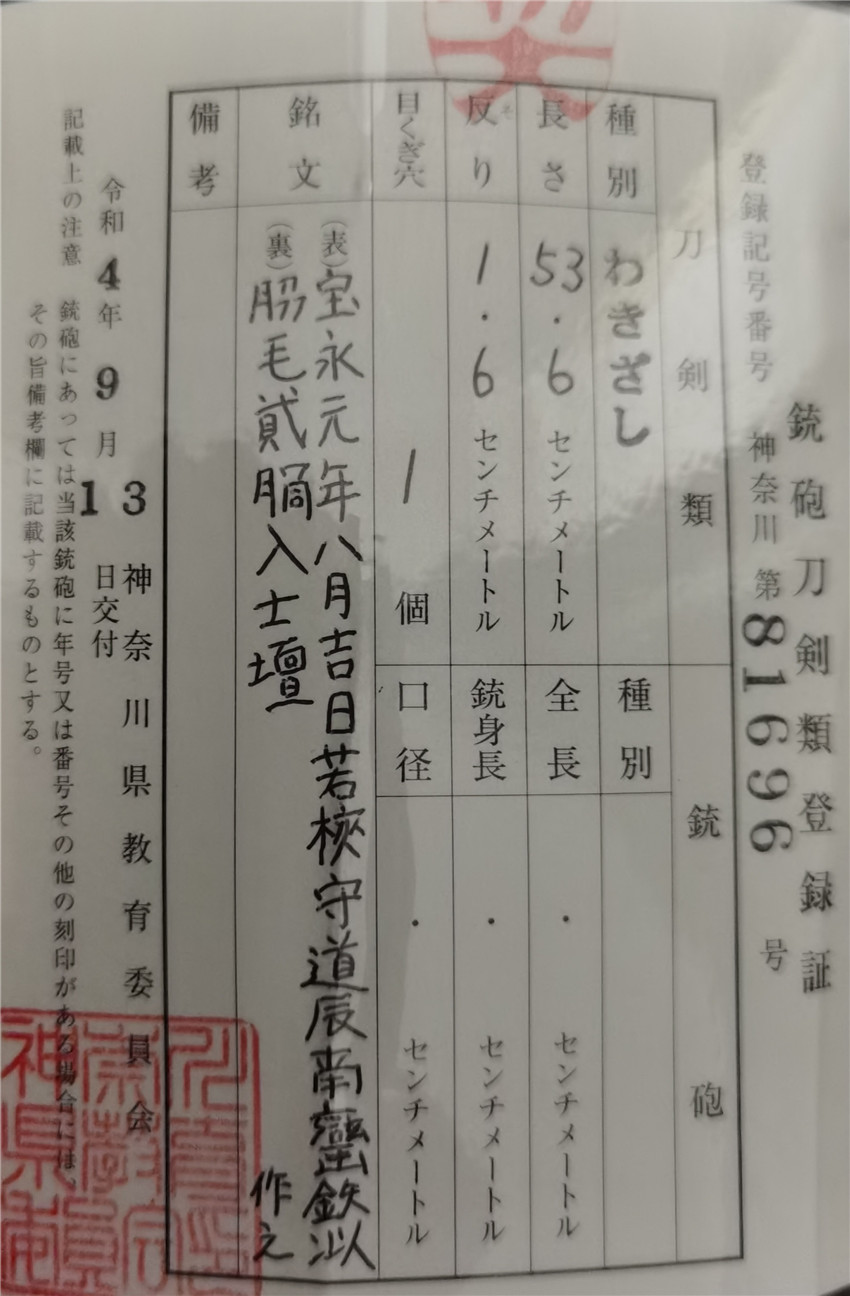 銃砲刀剣類登録証
登録記号番号 神奈川 第81696号
刀剣類
銃砲
種別 わきざし
種別
長さ 53.6センチメートル
全長 ・ センチメートル
反り 1.6センチメートル
銃身長 ・ センチメートル
目くぎ穴 1個
口径 ・ センチメートル
銘文
(表)宝永元年八月吉日若狹守道辰南蠻鉄以
作之
(裏)脇毛貳胴入士壇
備考
令和4年9月13日交付
神奈川県教育委員会
記載上の注意 銃砲にあっては当該銃砲に年号又は番号その他の刻印がある場合には、
その旨備考欄に記載するものとする。